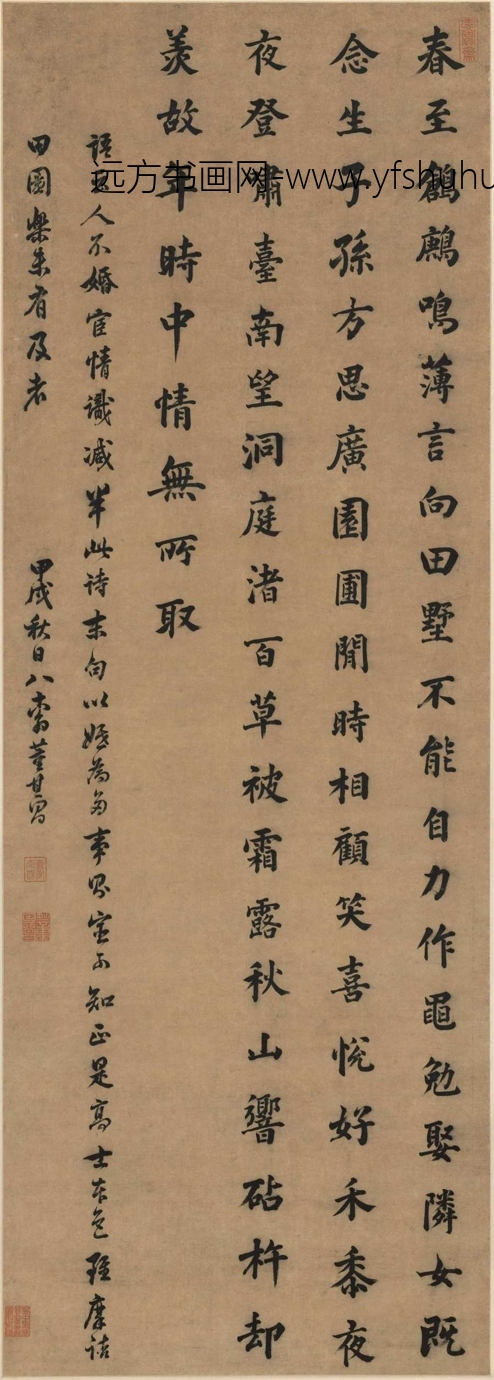 春至鶬鶊鳴薄言向田墅不能自力作黽勉娶隣女既
念生子孫方思廣園圃閒時相顧笑喜悅好禾黍夜
夜登嘯臺南望洞庭渚百草被霜露秋山響砧杵却
羨故年時中情無所取
語曰人不婚宦情識減半此詩末句以婚為多事則宦可知正是高士本色雖摩詰
田園樂未有及者 甲戌秋日八十翁董其昌
远方书画网-www.yfshuhu